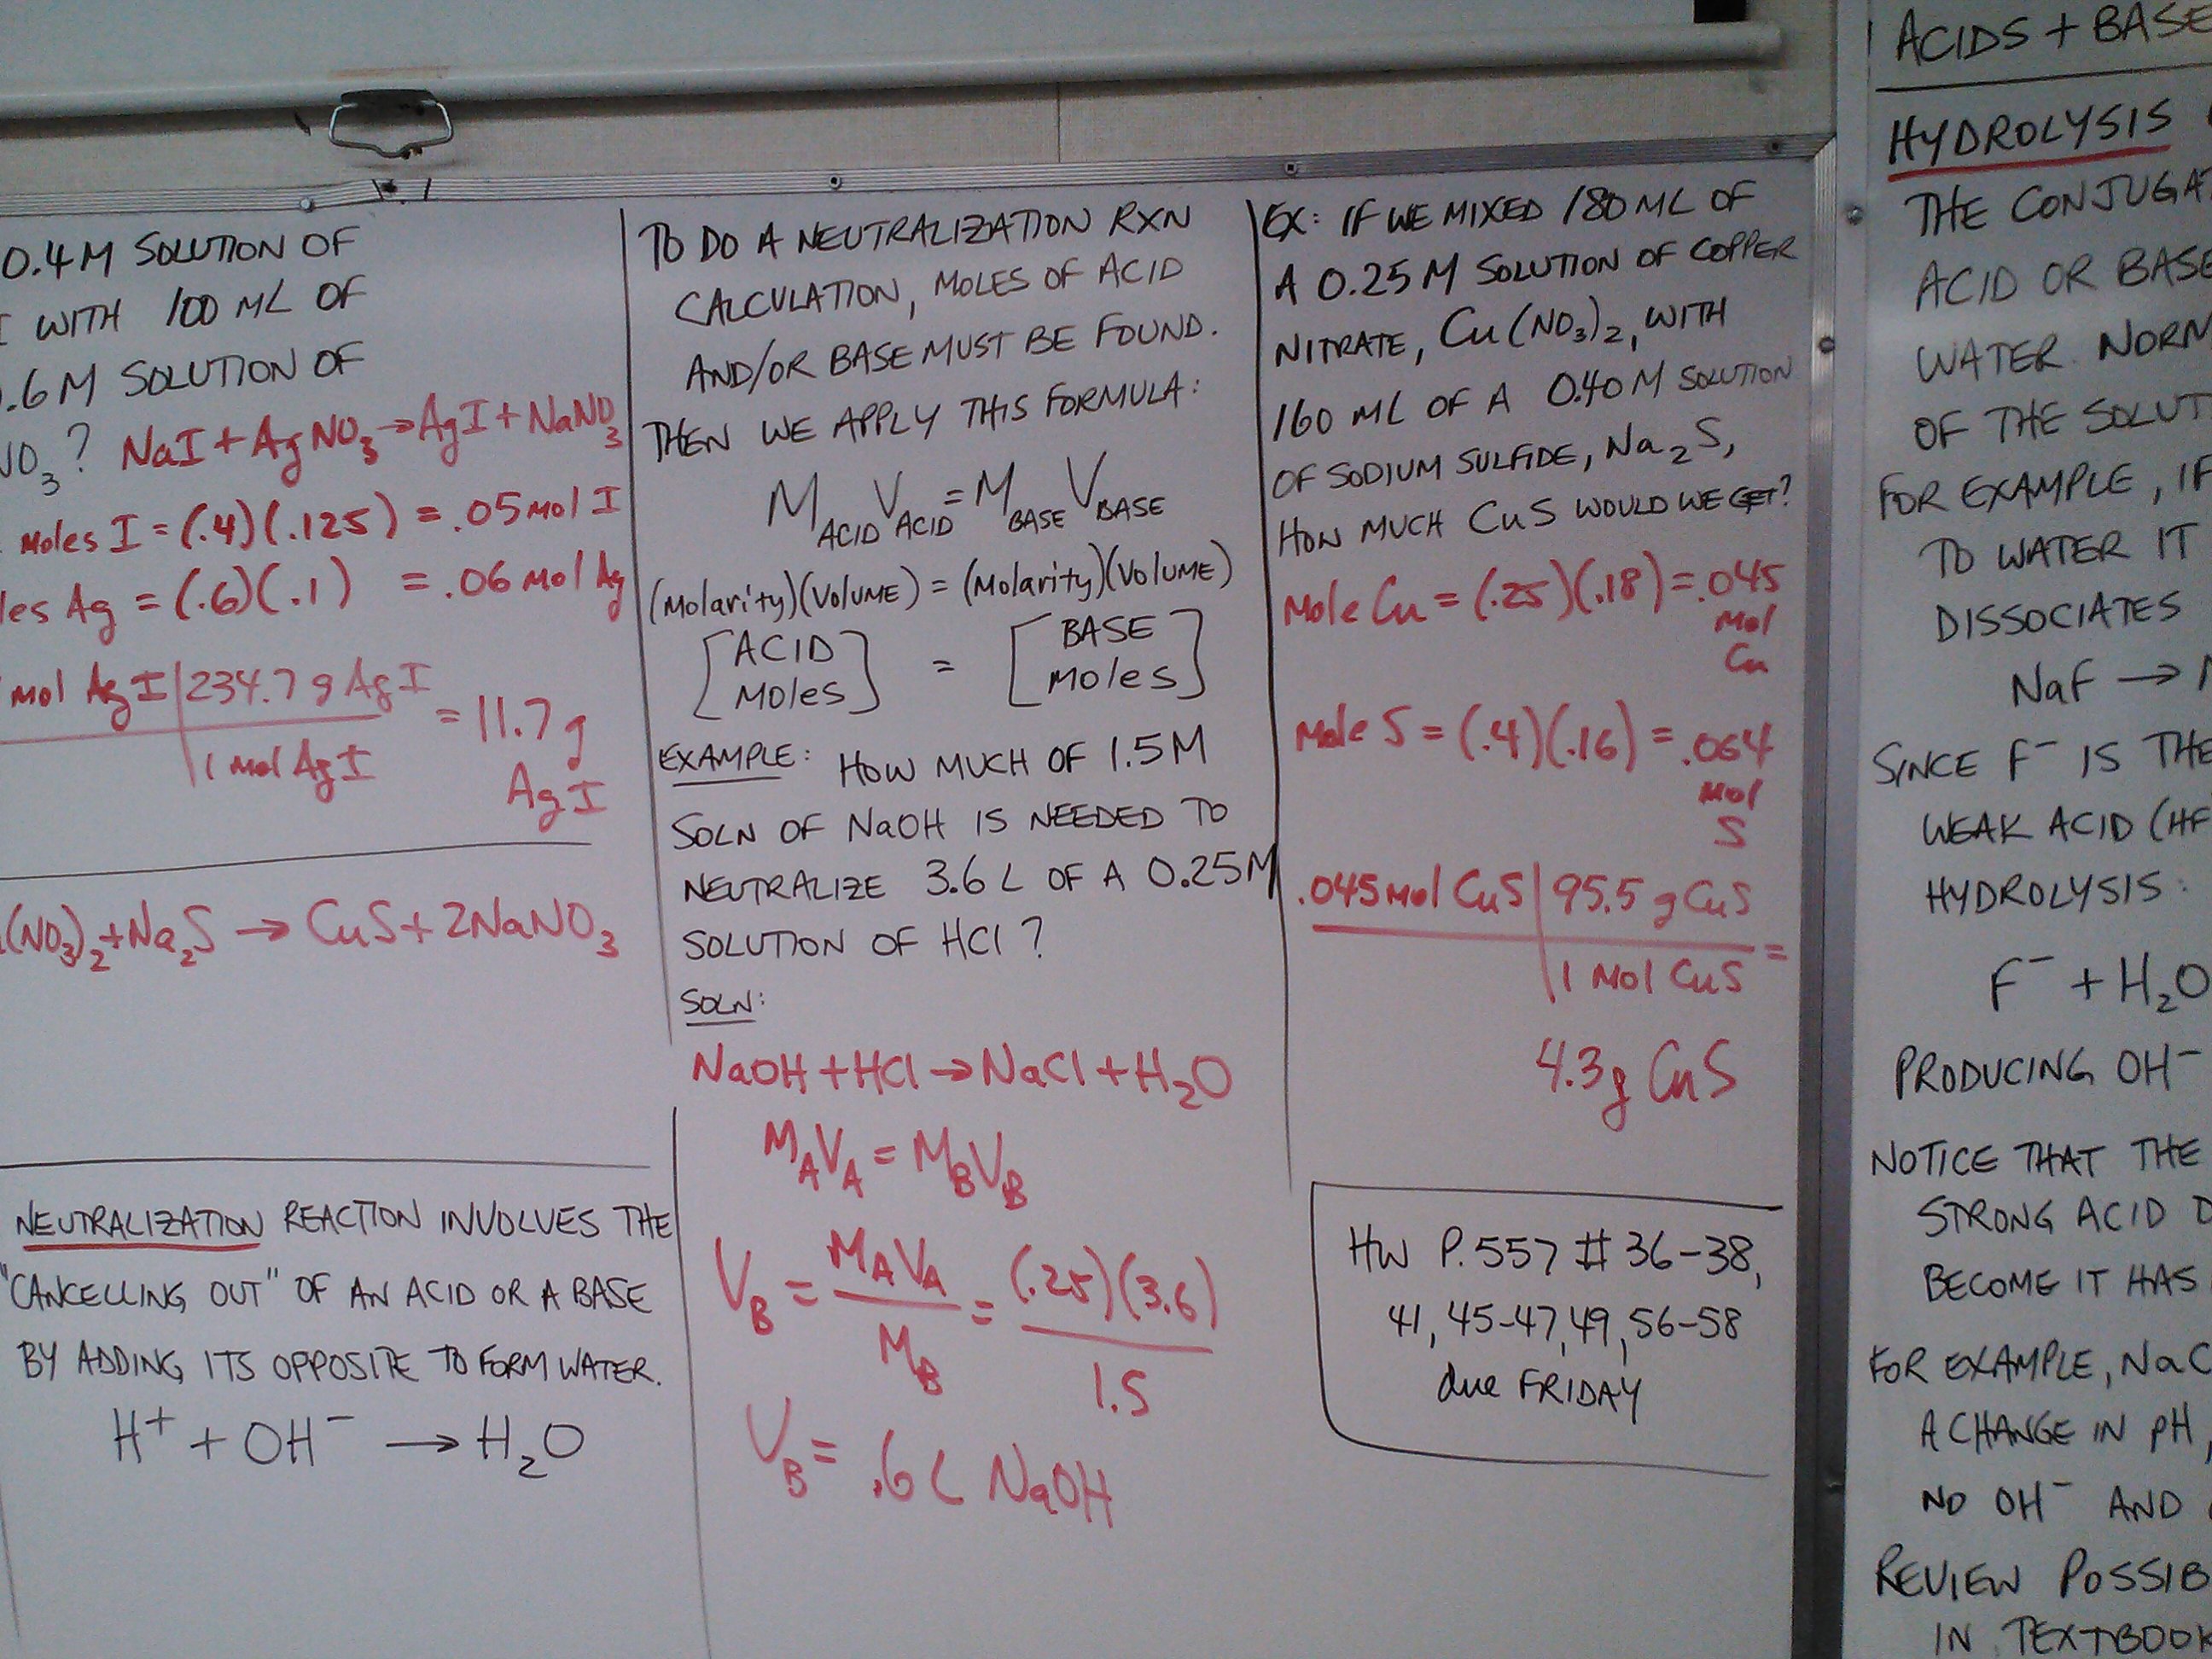 0.4M SOLUTION OF
I WITH 100 ML OF
.6M SOLUTION OF
NO₃? NaI + AgNO₃ → AgI + NaNO₃
Moles I = (.4)(.125) = .05 mol I
les Ag = (.6)(.1) = .06 mol Ag
mol AgI | 234.7 g AgI
1 mol AgI
= 11.7 g
AgI
(NO₃)₂ + Na₂S → CuS + 2NaNO₃
NEUTRALIZATION REACTION INVOLVES THE
"CANCELLING OUT" OF AN ACID OR A BASE
BY ADDING ITS OPPOSITE TO FORM WATER.
H⁺ + OH⁻ → H₂O
TO DO A NEUTRALIZATION RXN
CALCULATION, MOLES OF ACID
AND/OR BASE MUST BE FOUND.
THEN WE APPLY THIS FORMULA:
M_ACID V_ACID = M_BASE V_BASE
(Molarity)(VOLUME) = (Molarity)(VOLUME)
[ACID = [BASE
Moles] Moles]
EXAMPLE: HOW MUCH OF 1.5M
SOLN OF NaOH IS NEEDED TO
NEUTRALIZE 3.6 L OF A 0.25M
SOLUTION OF HCl?
SOLN:
NaOH + HCl → NaCl + H₂O
M_A V_A = M_B V_B
V_B = M_A V_A / M_B = (.25)(3.6) / 1.5
V_B = .6 L NaOH
EX: IF WE MIXED 180 ML OF
A 0.25 M SOLUTION OF COPPER
NITRATE, Cu(NO₃)₂, WITH
160 ML OF A 0.40 M SOLUTION
OF SODIUM SULFIDE, Na₂S,
HOW MUCH CuS WOULD WE GET?
Mole Cu = (.25)(.18) = .045
Mol
Cu
Mole S = (.4)(.16) = .064
Mol
S
.045 mol CuS | 95.5 g CuS
1 Mol CuS =
4.3g CuS
HW P.557 # 36-38,
41, 45-47, 49, 56-58
due FRIDAY
ACIDS + BASE
HYDROLYSIS
THE CONJUGA
ACID OR BASE
WATER. NORM
OF THE SOLUT
FOR EXAMPLE, IF
TO WATER IT
DISSOCIATES
NaF →
SINCE F⁻ IS THE
WEAK ACID (HF
HYDROLYSIS:
F⁻ + H₂O
PRODUCING OH⁻
NOTICE THAT THE
STRONG ACID D
BECOME IT HAS
FOR EXAMPLE, NaC
A CHANGE IN pH,
NO OH⁻ AND
REVIEW POSSIB
IN TEXTBOOK